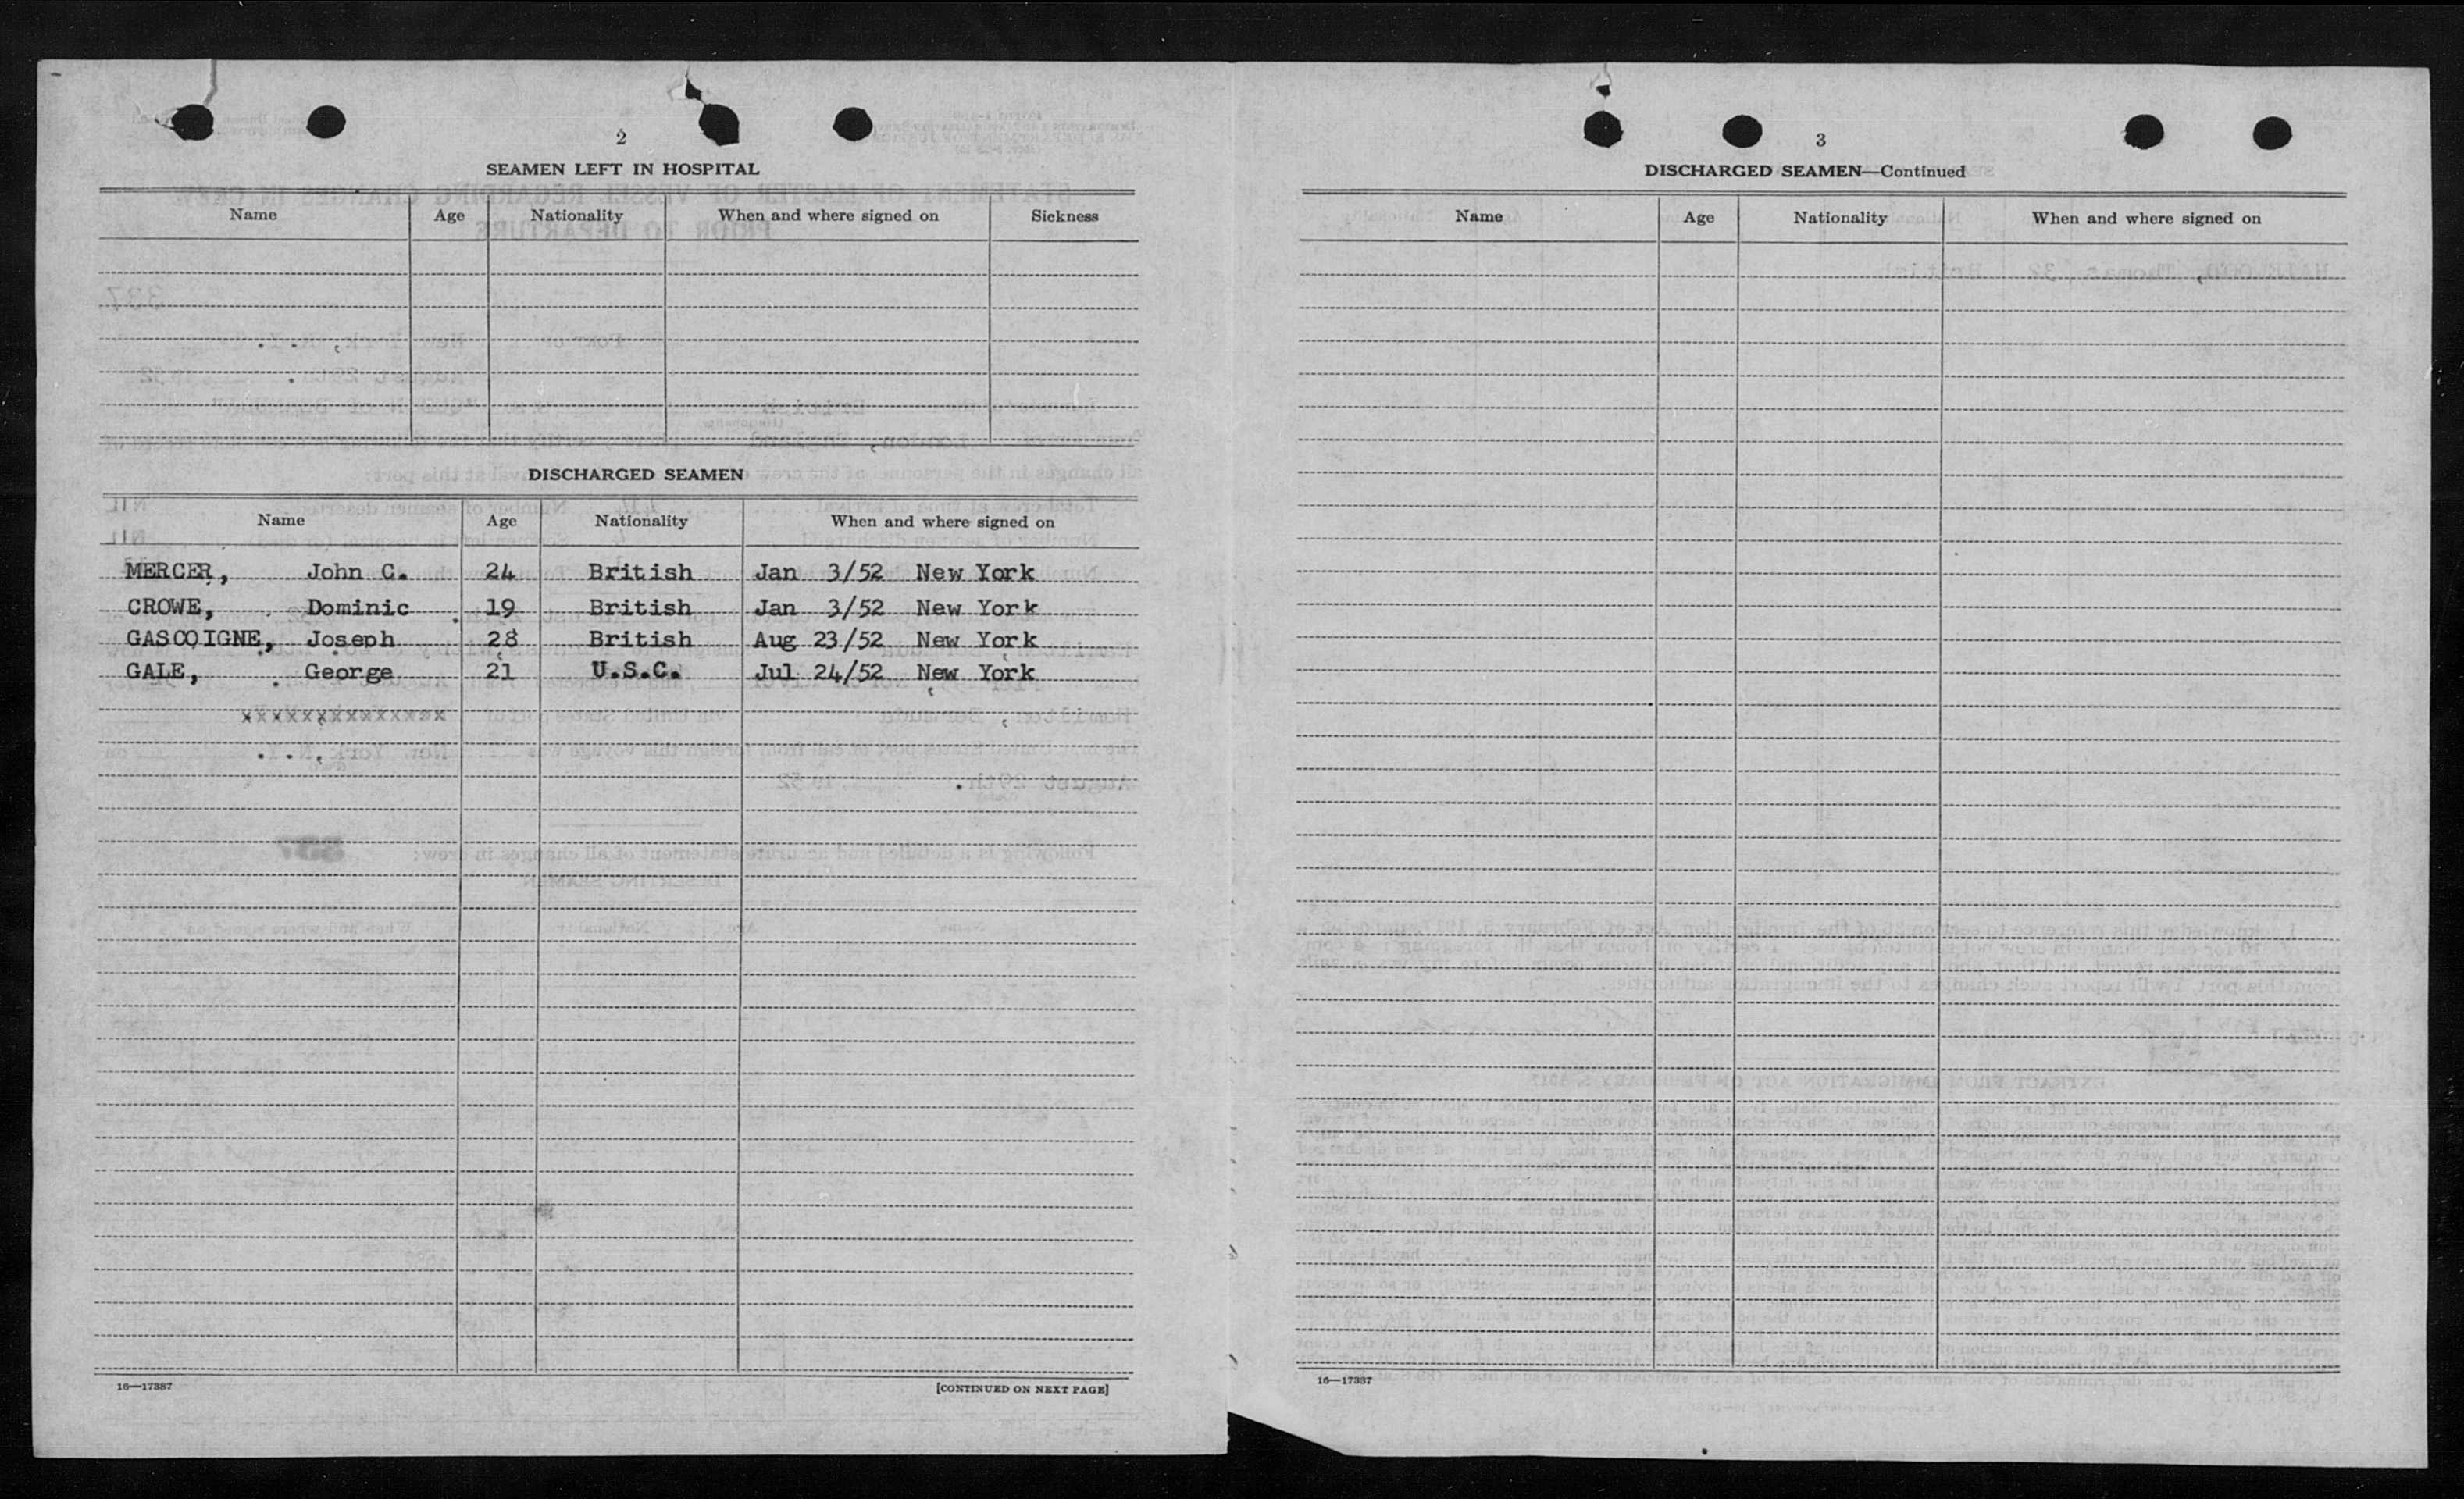 2
SEAMEN LEFT IN HOSPITAL
Name Age Nationality When and where signed on Sickness
DISCHARGED SEAMEN
Name Age Nationality When and where signed on
MERCER, John C. 24 British Jan 3/52 New York
CROWE, Dominic 19 British Jan 3/52 New York
GASCOIGNE, Joseph 28 British Aug 23/52 New York
GALE, George 21 U.S.C. Jul 24/52 New York
xxxxxxxxxxxxxx
16—17387
[CONTINUED ON NEXT PAGE]
3
DISCHARGED SEAMEN—Continued
Name Age Nationality When and where signed on
16—17387